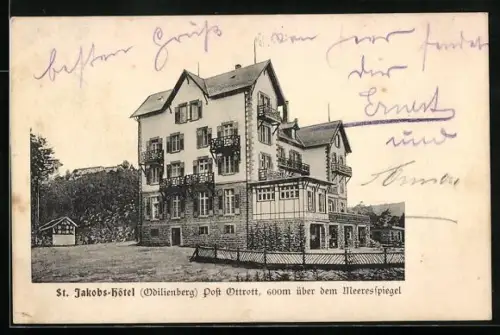 besten Gruß von hier sendet
dir
Ernest
und
St. Jakobs-Hôtel (Odilienberg) Post Ottrott, 600m über dem Meeresspiegel